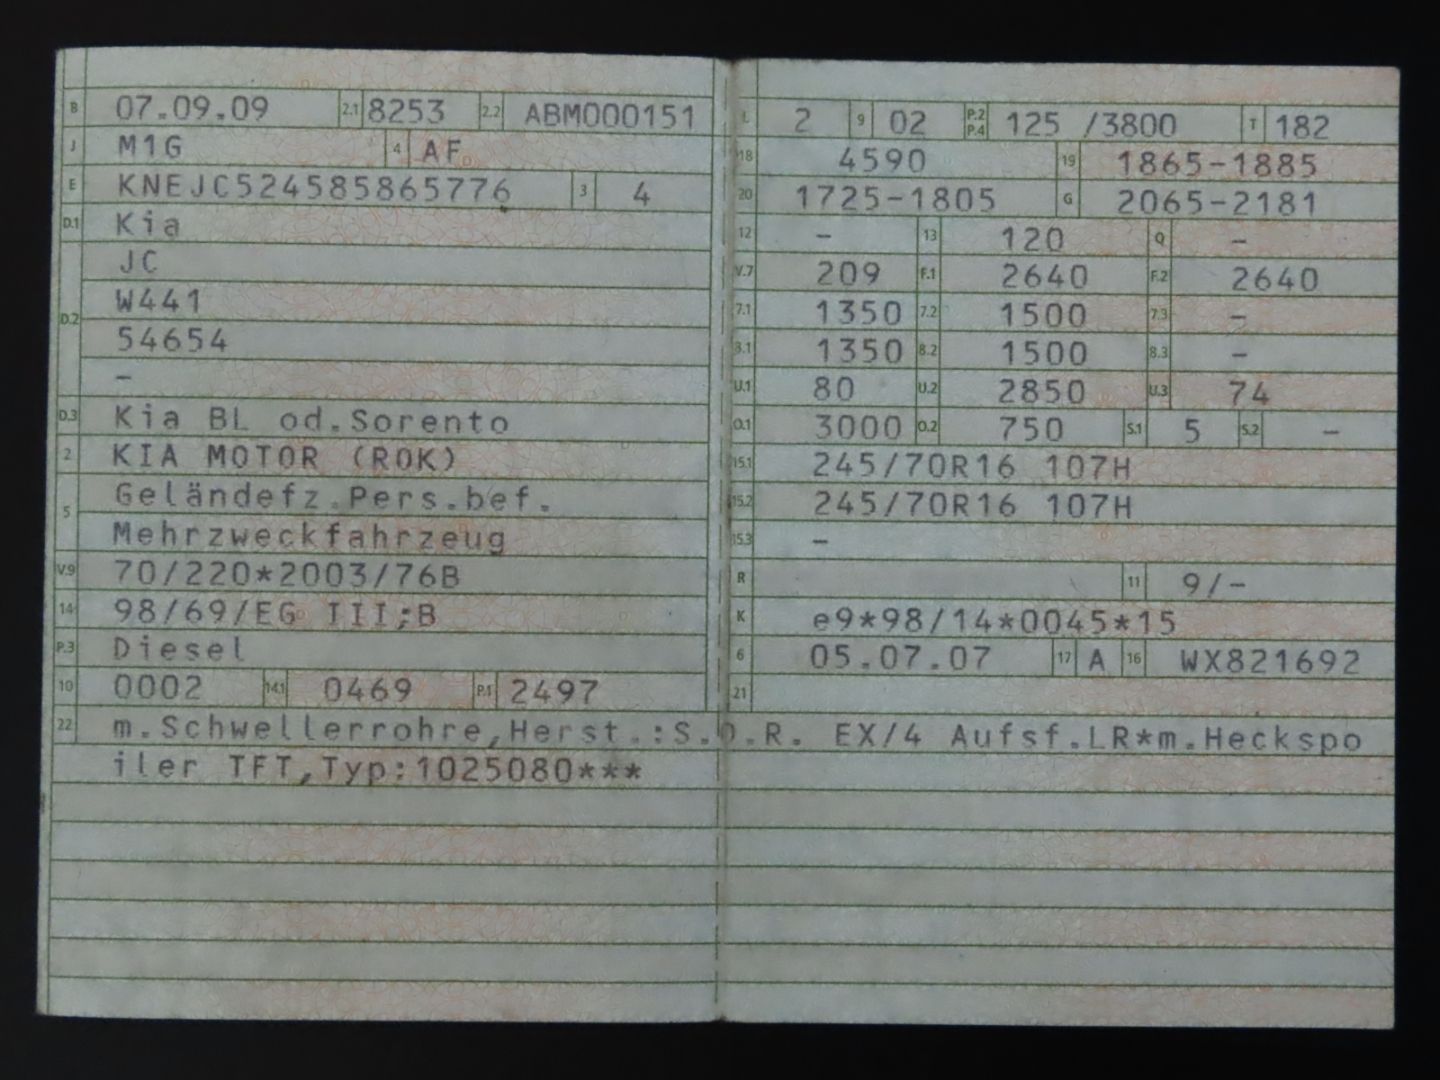 B 07.09.09 2.1 8253 2.2 ABM000151
J M1G 4 AF
E KNEJC524585865776 3 4
D.1 Kia
JC
D.2 W441
54654
-
D.3 Kia BL od.Sorento
2 KIA MOTOR (ROK)
5 Geländefz.Pers.bef.
Mehrzweckfahrzeug
V.9 70/220*2003/76B
14 98/69/EG III;B
P.3 Diesel
10 0002 14.1 0469 P.1 2497
L 2 9 02 P.2 P.4 125 /3800 T 182
18 4590 19 1865-1885
20 1725-1805 G 2065-2181
12 - 13 120 Q -
V.7 209 F.1 2640 F.2 2640
7.1 1350 7.2 1500 7.3 -
8.1 1350 8.2 1500 8.3 -
U.1 80 U.2 2850 U.3 74
O.1 3000 O.2 750 S.1 5 S.2 -
15.1 245/70R16 107H
15.2 245/70R16 107H
15.3 -
R 11 9/-
K e9*98/14*0045*15
6 05.07.07 17 A 16 WX821692
21
22 m.Schwellerrohre,Herst.:S.O.R. EX/4 Aufsf.LR*m.Heckspo
iler TFT,Typ:1025080***